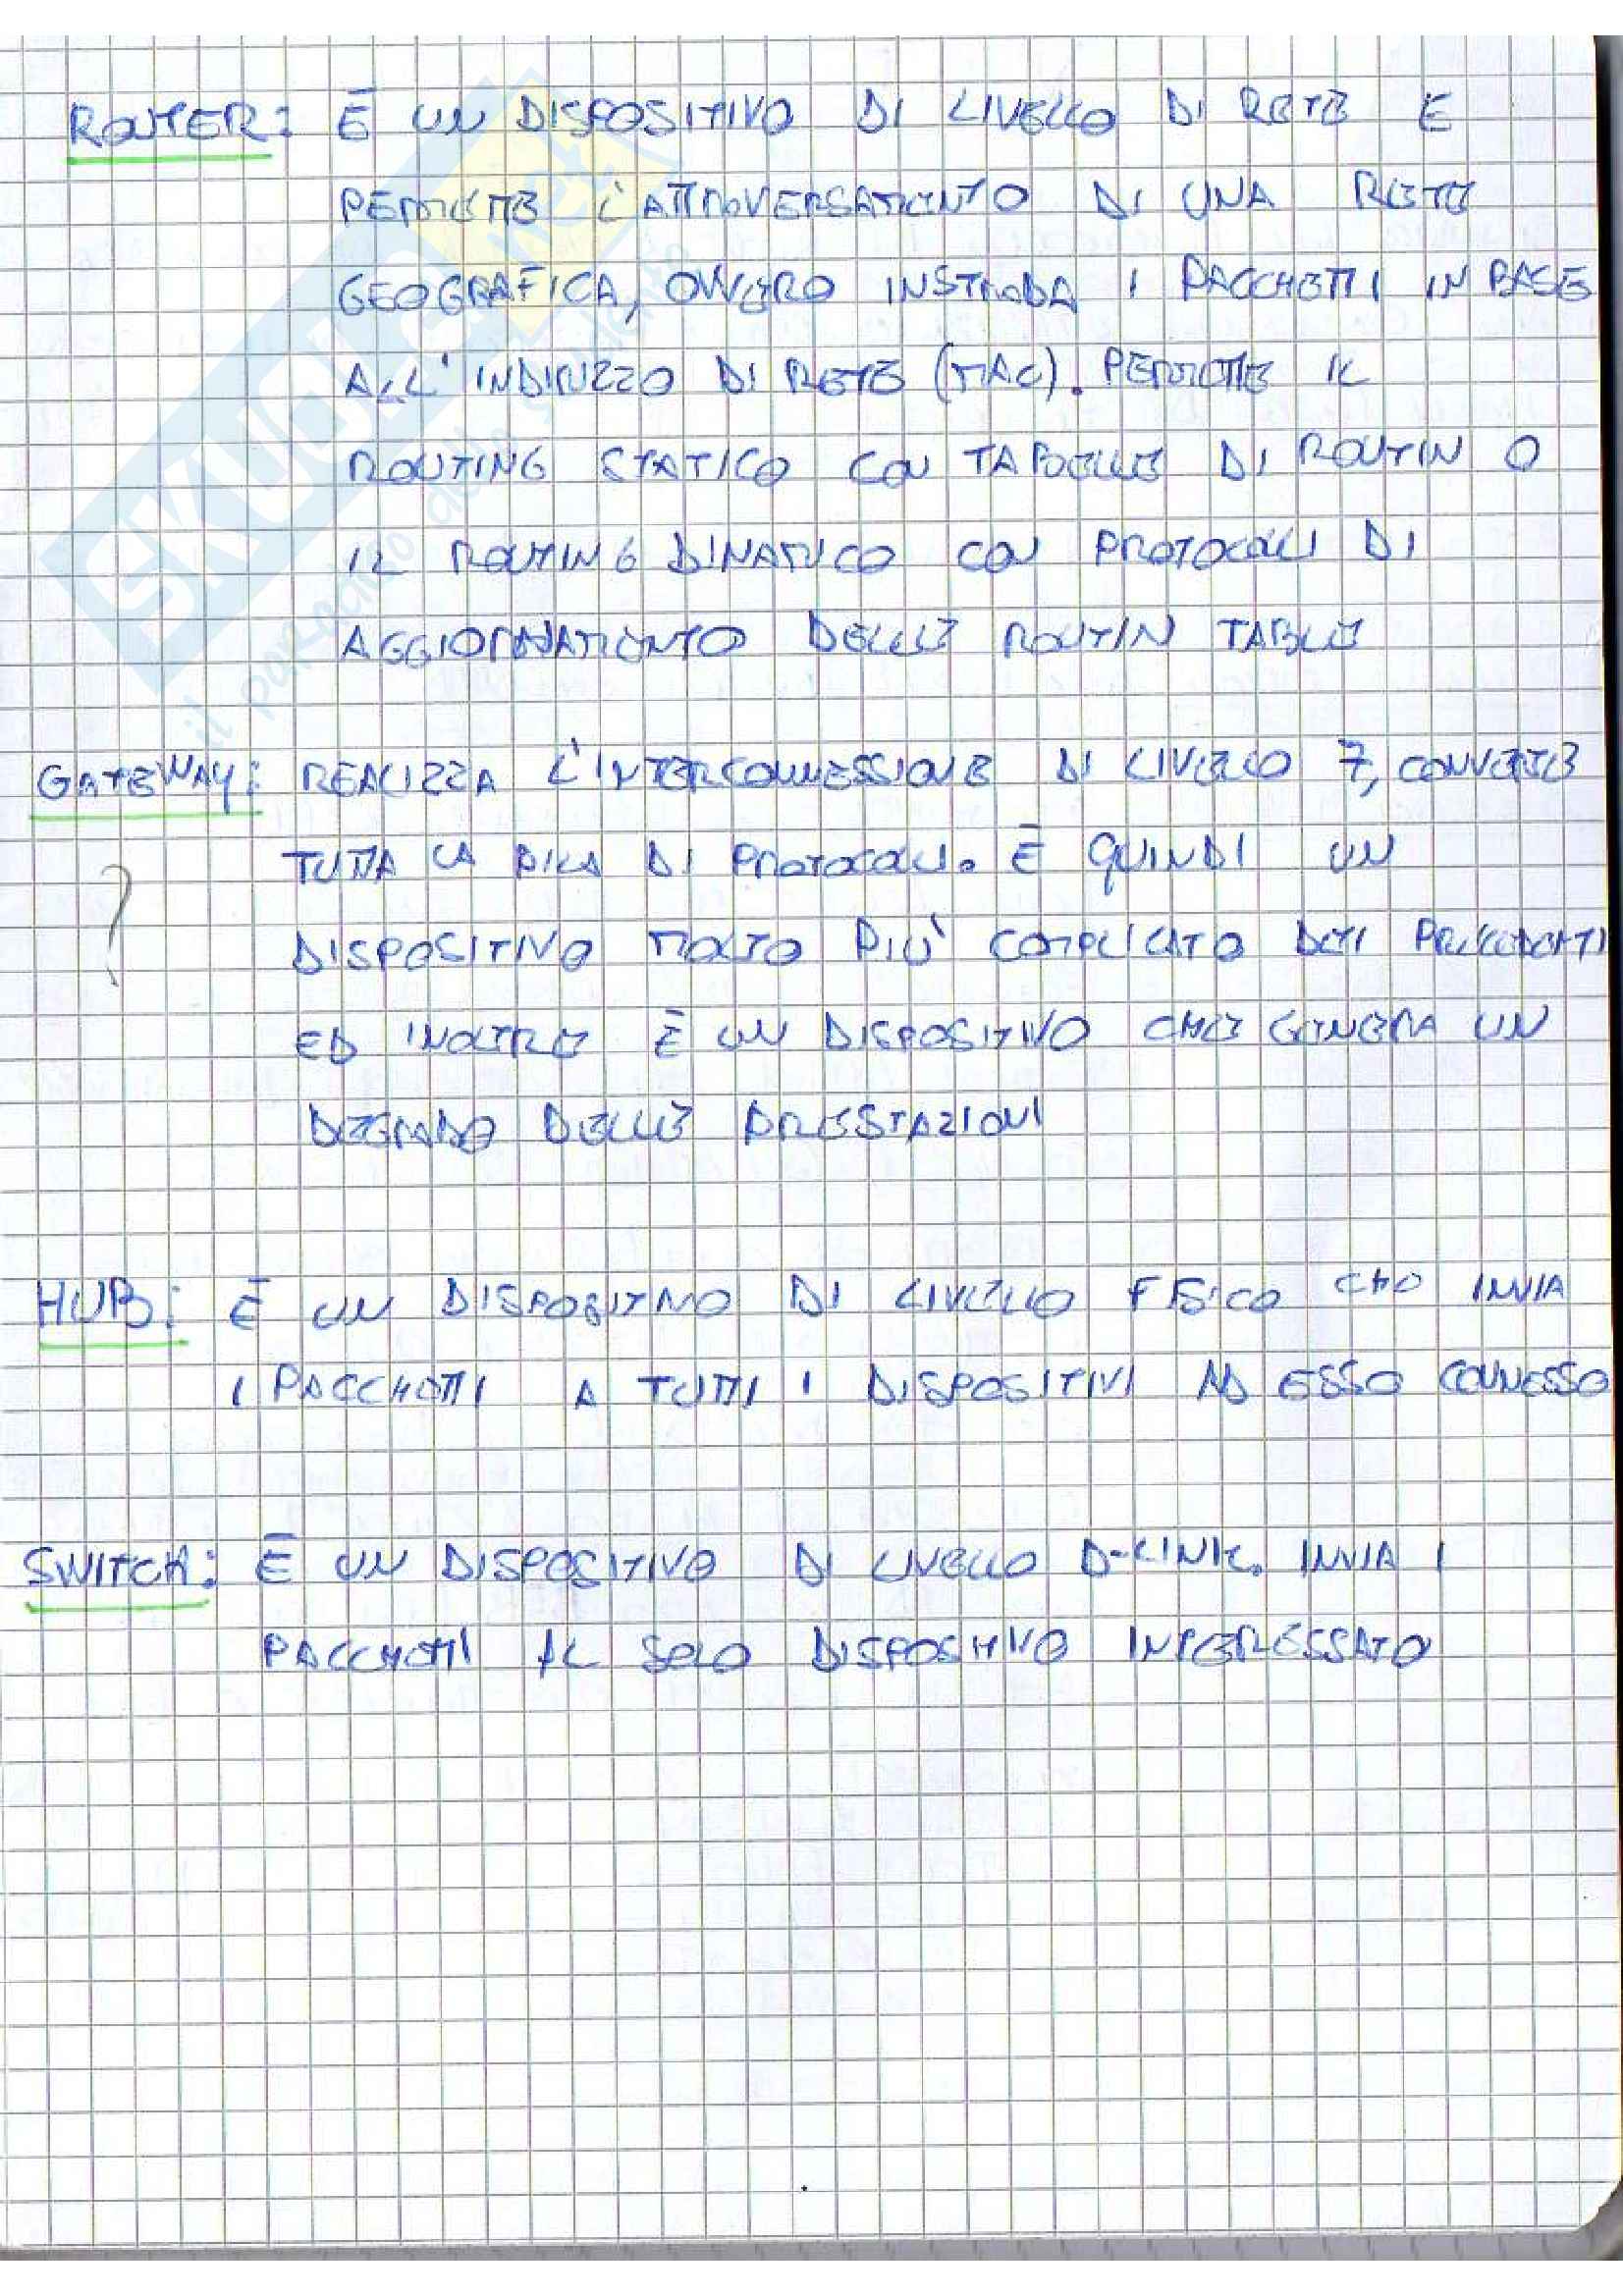 ROUTER: È UN DISPOSITIVO DI LIVELLO DI RETE E
PERMETTE L'ATTROVERSAMENTO DI UNA RETE
GEOGRAFICA, OVVERO INSTRADA I PACCHETTI IN BASE
ALL'INDIRIZZO DI RETE (MAC). PERMETTE IL
ROUTING STATICO CON TABELLE DI ROUTIN O
IL ROUTING DINAMICO CON PROTOCOLLI DI
AGGIORNAMENTO DELLE ROUTIN TABLE
GATEWAY: REALIZZA L'INTERCONNESSIONE DI LIVELLO 7, CONVERTE
?
TUTTA LA PILA DI PROTOCOLLI. È QUINDI UN
DISPOSITIVO MOLTO PIÙ COMPLICATO DEI PRECEDENTI
ED INOLTRE È UN DISPOSITIVO CHE GENERA UN
DEGRADO DELLE PRESTAZIONI
HUB: È UN DISPOSITIVO DI LIVELLO FISICO CHE INVIA
I PACCHETTI A TUTTI I DISPOSITIVI AD ESSO CONNESSO
SWITCH: È UN DISPOSITIVO DI LIVELLO D-LINK. INVIA I
PACCHETTI AL SOLO DISPOSITIVO INTERESSATO
SKUOLA.net
il paradiso dello studente